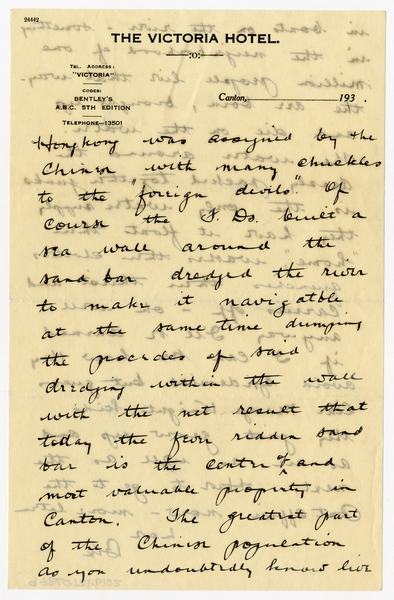 24442
THE VICTORIA HOTEL.
:o:
TEL. ADDRESS:
"VICTORIA"
CODES:
BENTLEY'S
A.B.C. 5TH EDITION
TELEPHONE—13501
Canton, 193 .
Hongkong was assigned by the
Chinese with many chuckles
to the "foreign devils". Of
course the F. Ds. built a
sea wall around the
sand bar dredged the river
to make it navigatble
at the same time dumping
the procedes of said
dredging within the wall
with the net result that
today the fever ridden sand
bar is the centre of and
most valuable property in
Canton. The greatest part
of the Chinese population
as you undoubtedly know live